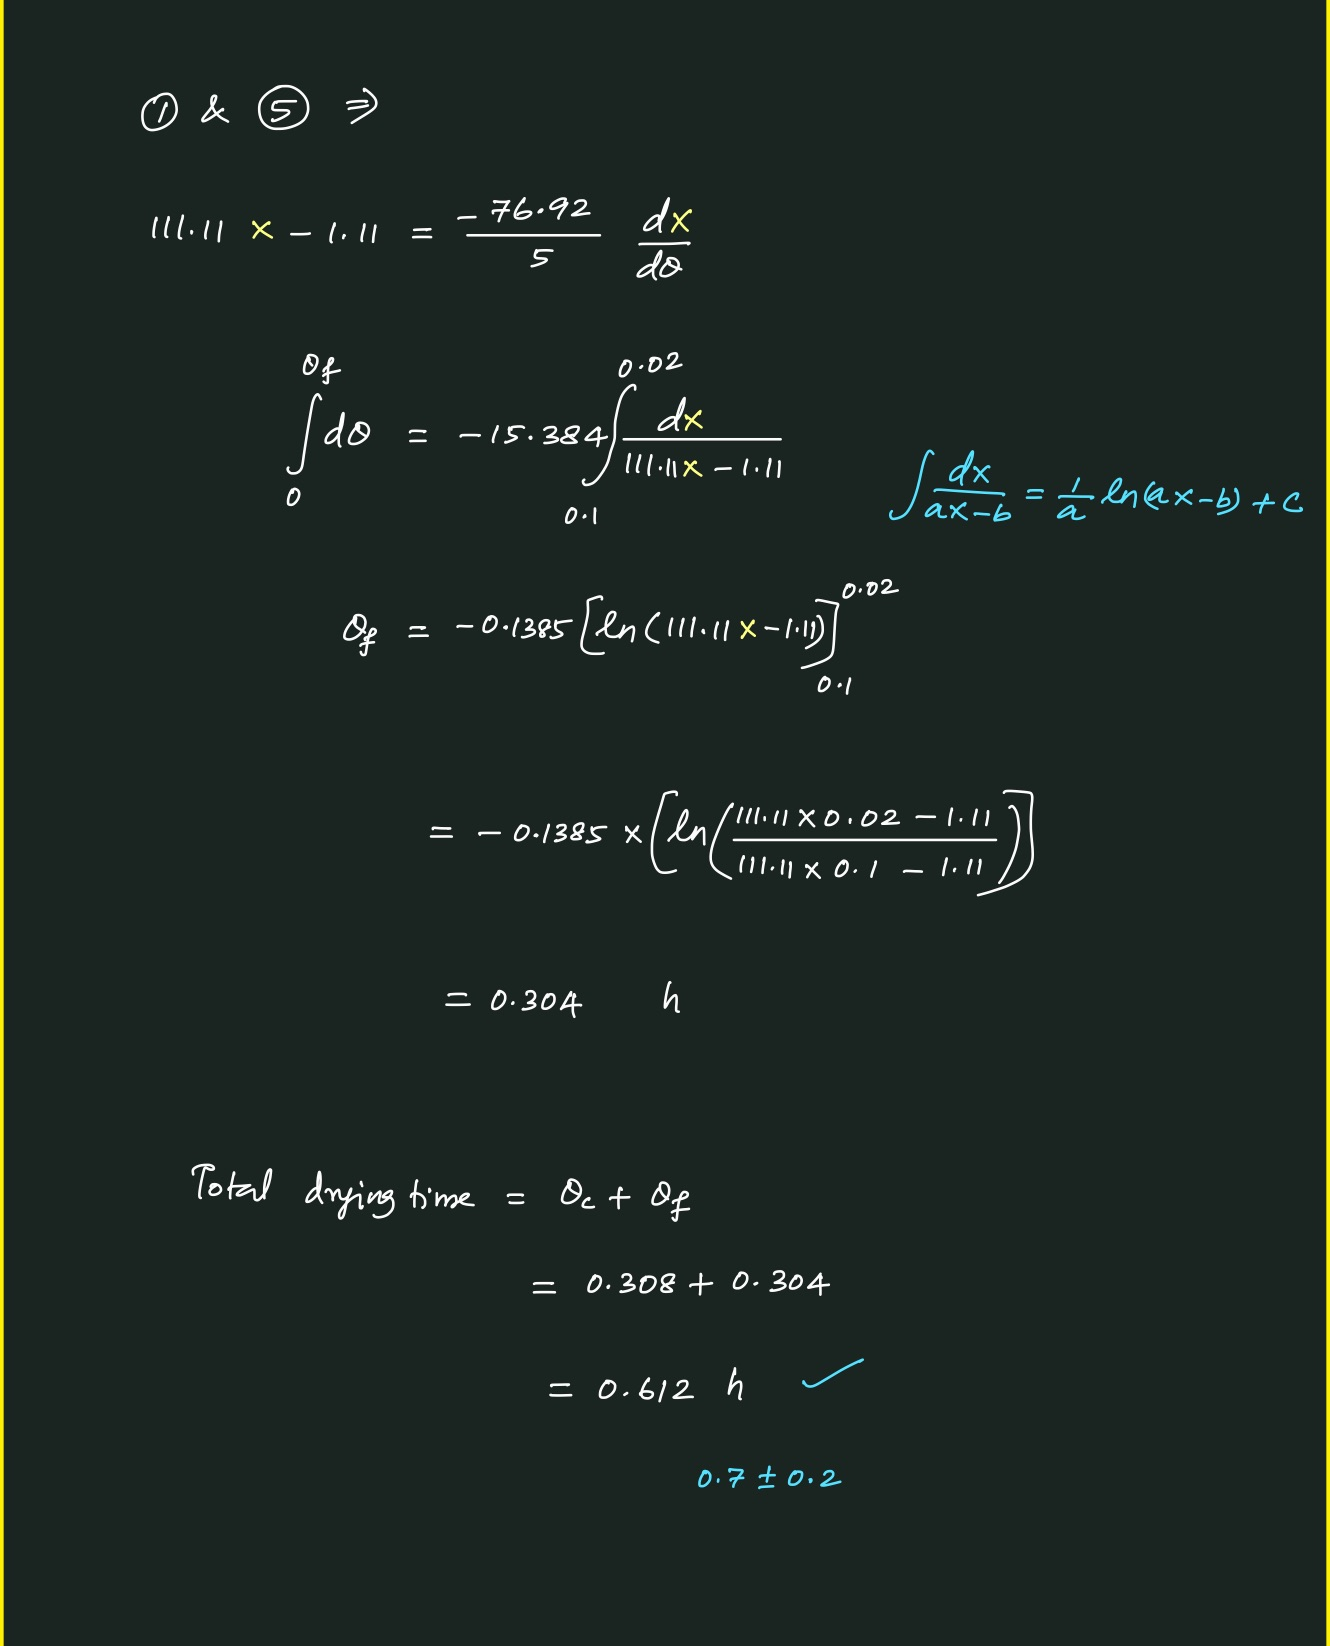 ① & ⑤ ⇒
111.11 x − 1.11 = −76.92/5 dx/dθ
∫₀^θf dθ = −15.384 ∫_0.1^0.02 dx/(111.11x − 1.11)
∫ dx/(ax−b) = 1/a ln(ax−b) + c
θf = −0.1385 [ln(111.11x − 1.11)]_0.1^0.02
= −0.1385 × [ln((111.11 × 0.02 − 1.11)/(111.11 × 0.1 − 1.11))]
= 0.304 h
Total drying time = θc + θf
= 0.308 + 0.304
= 0.612 h ✓
0.7 ± 0.2